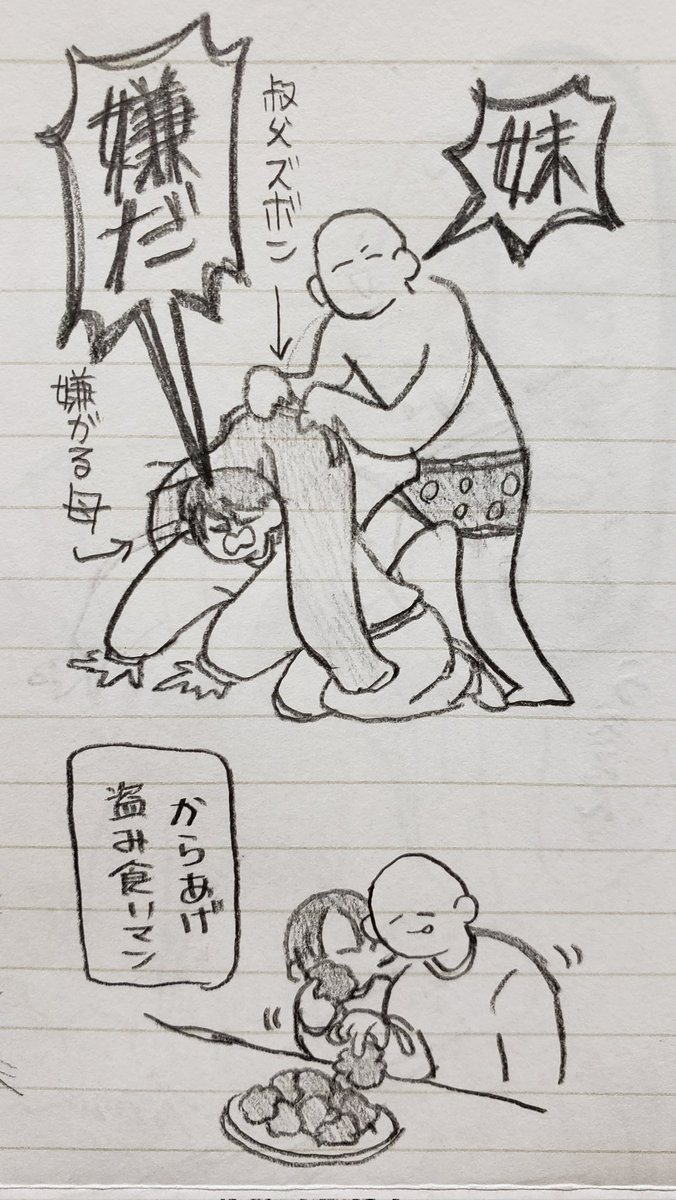 妹
叔父ズボン
嫌だ
嫌がる母
からあげ
盗み食いマン